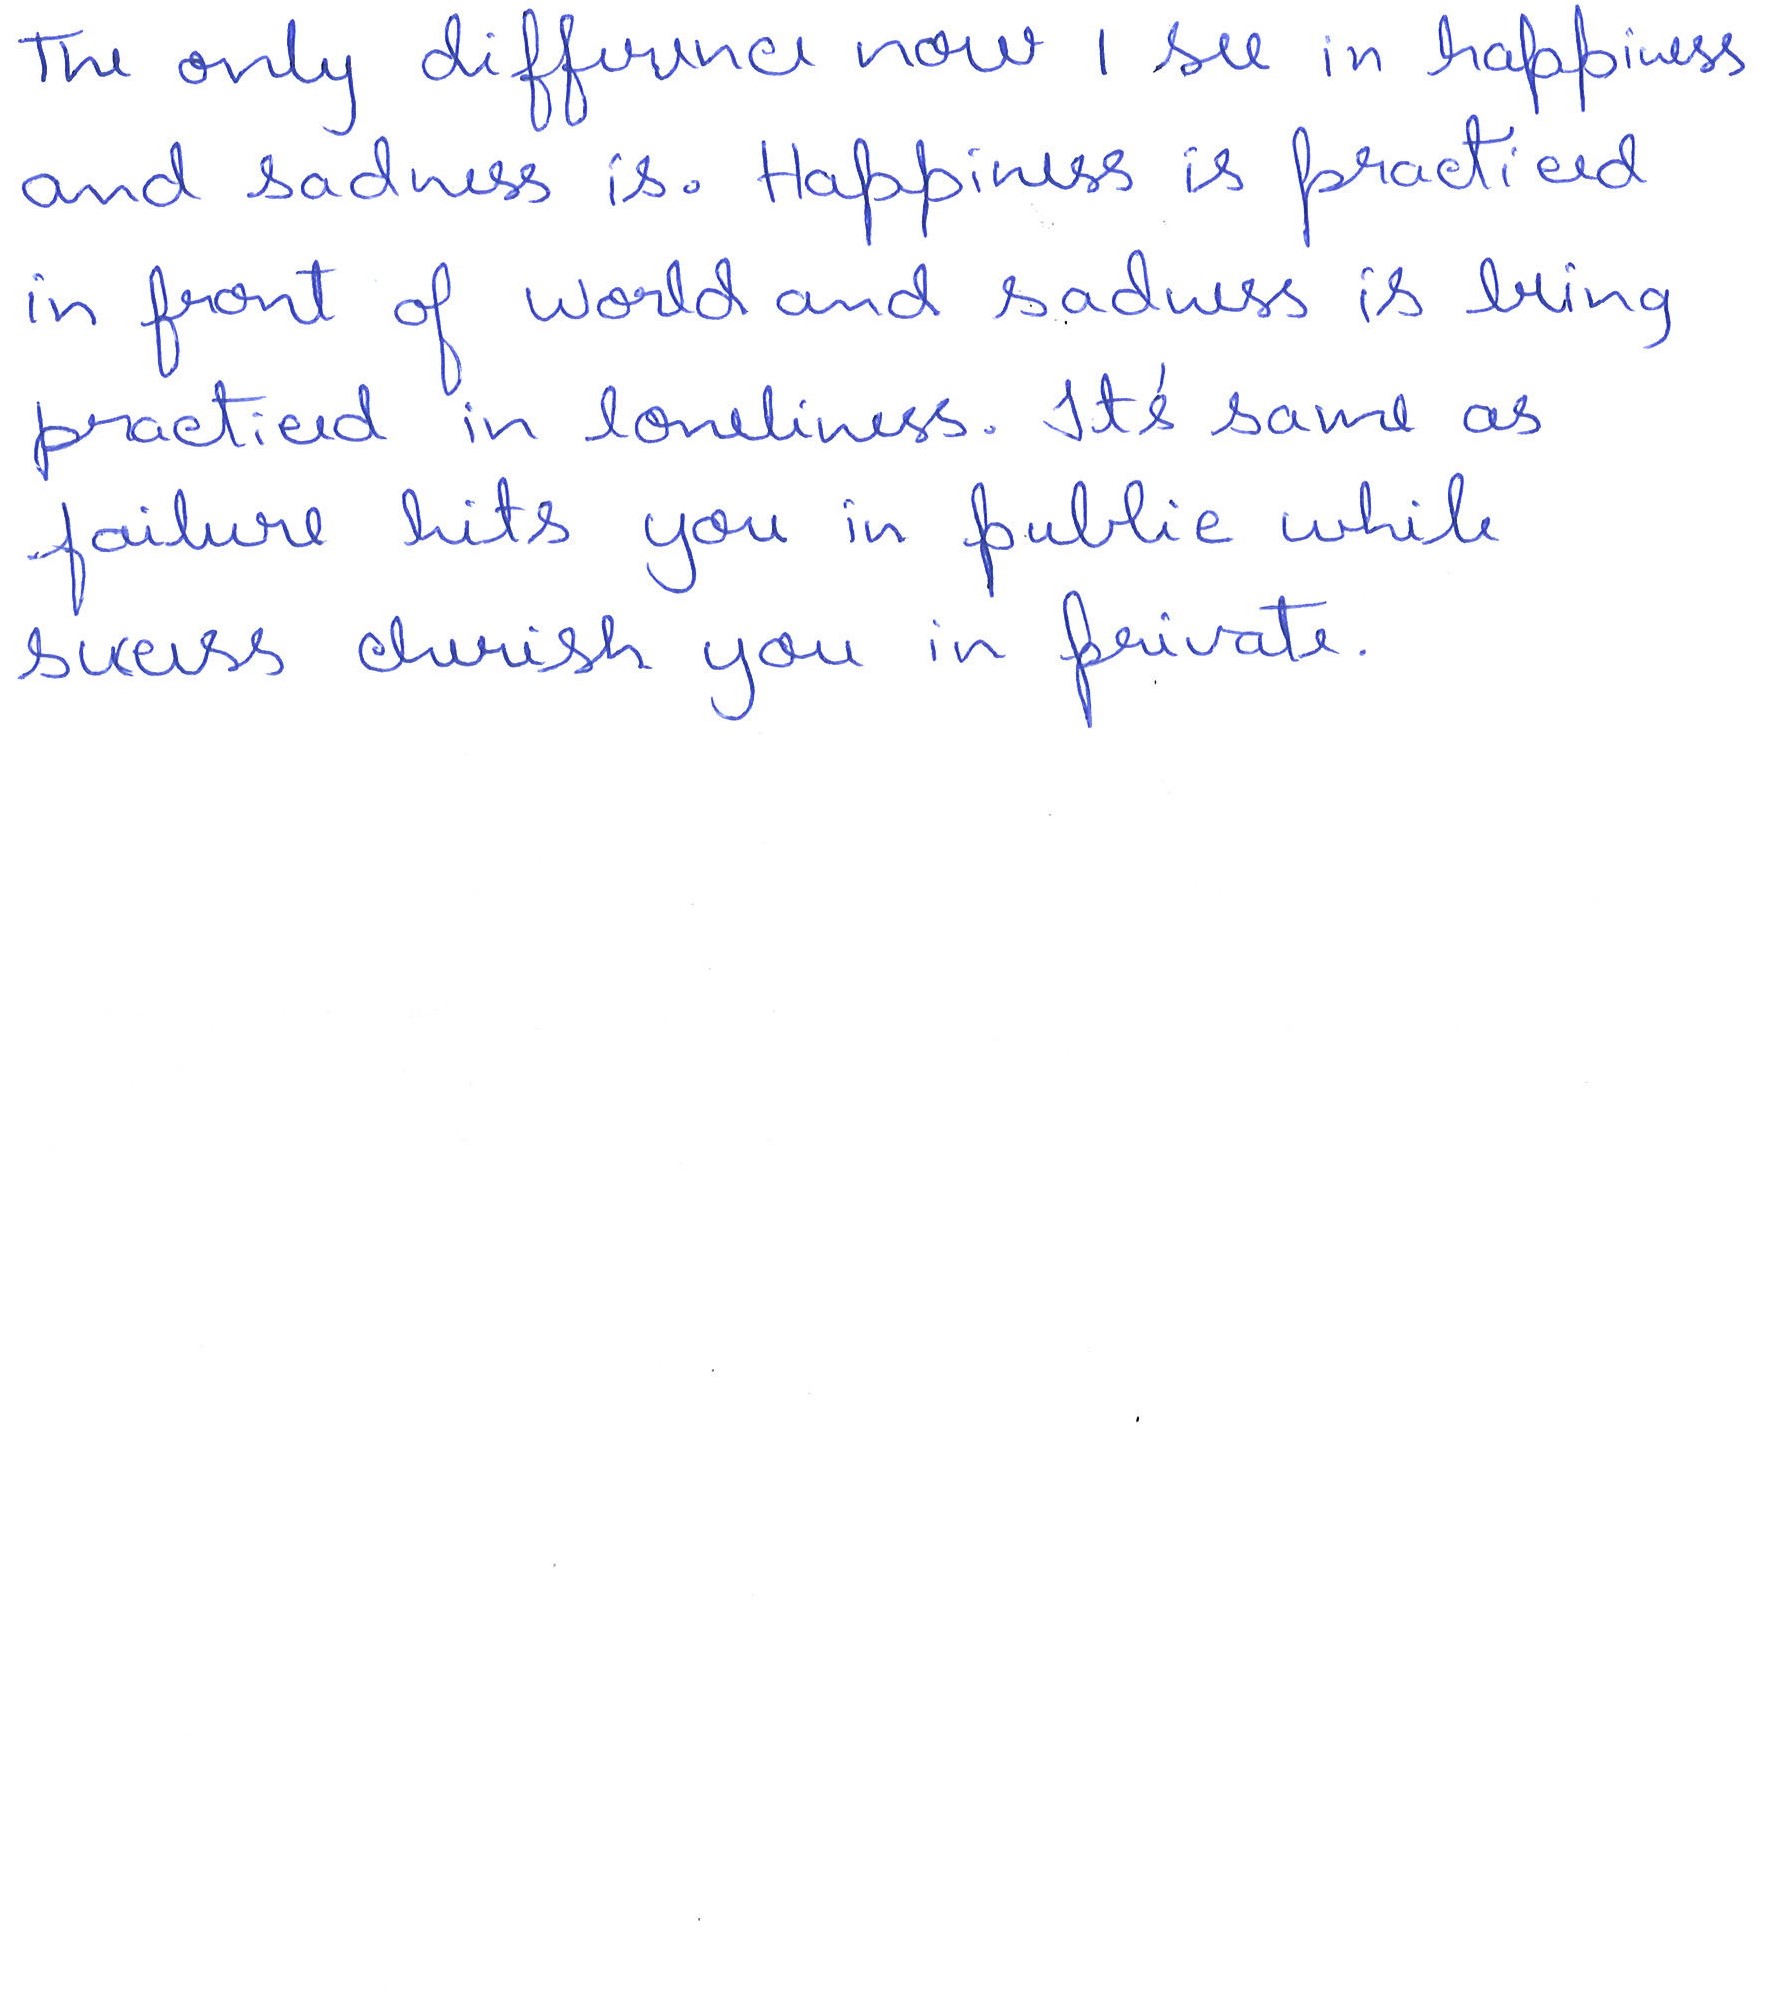 The only difference now I see in happiness
and sadness is. Happiness is practiced
in front of world and sadness is being
practiced in loneliness. It's same as
failure hits you in public while
success cherish you in private.